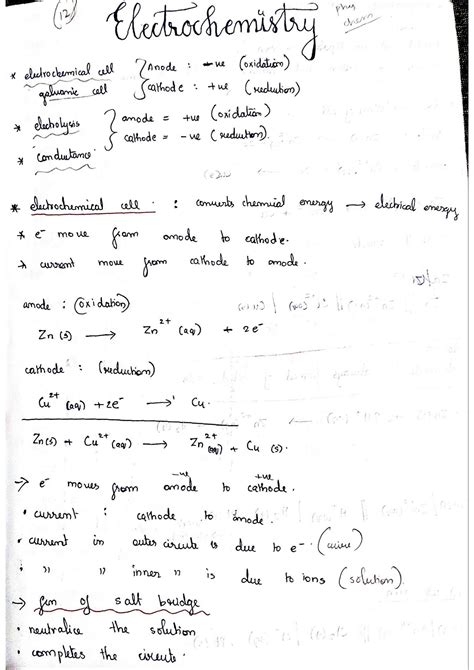 (12) Electrochemistry phy chem
* electrochemical cell } Anode : -ve (oxidation)
galvanic cell } cathode : +ve (reduction)
* electrolysis } anode = +ve (oxidation)
cathode = -ve (reduction).
* conductance
* electrochemical cell : converts chemical energy → electrical energy
* e⁻ move from anode to cathode.
→ current move from cathode to anode.
anode : (oxidation)
Zn (s) → Zn²⁺ (aq) + 2e⁻
cathode : (reduction)
Cu²⁺ (aq) + 2e⁻ → Cu.
Zn(s) + Cu²⁺(aq) → Zn²⁺(aq) + Cu (s).
→ e⁻ moves from -ve anode to +ve cathode.
• current : cathode to anode.
• current in outer circuit is due to e⁻ (wire)
• " " inner " is due to ions (solution).
→ fxn of salt bridge
• neutralise the solution
• completes the circuit.